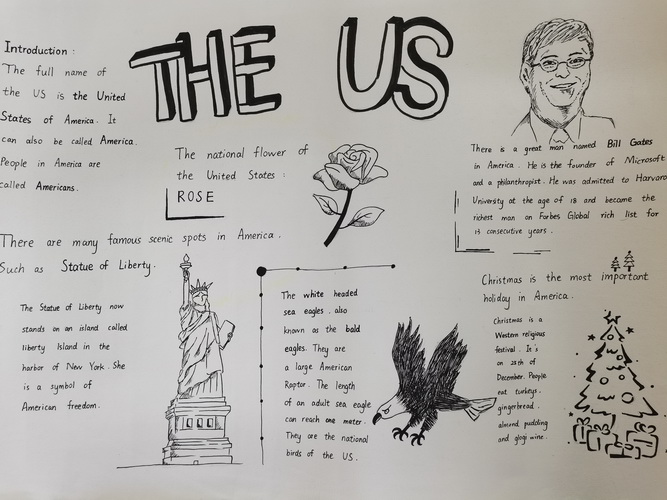 THE US
Introduction :
The full name of
the US is the United
States of America. It
can also be called America.
People in America are
called Americans.
The national flower of
the United States :
ROSE
There is a great man named Bill Gates
in America. He is the founder of Microsoft
and a philanthropist. He was admitted to Harvard
University at the age of 18 and became the
richest man on Forbes Global rich list for
13 consecutive years.
There are many famous scenic spots in America.
Such as Statue of Liberty.
The Statue of Liberty now
stands on an island called
liberty Island in the
harbor of New York. She
is a symbol of
American freedom.
The white headed
sea eagles. also
known as the bald
eagles. They are
a large American
Raptor. The length
of an adult sea eagle
can reach one meter.
They are the national
birds of the US.
Christmas is the most important
holiday in America.
Christmas is a
Western religious
festival. It's
on 25th of
December. People
eat turkeys.
gingerbread.
almond pudding
and glogi wine.